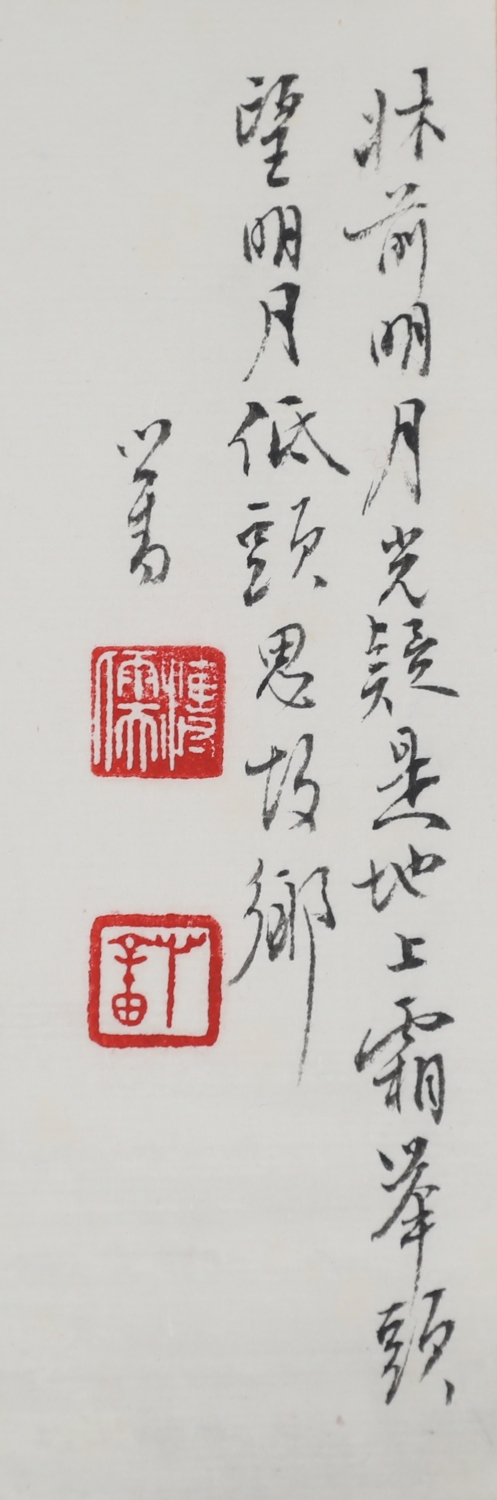 牀前明月光疑是地上霜舉頭
望明月低頭思故鄉
心畬
溥儒
心畬